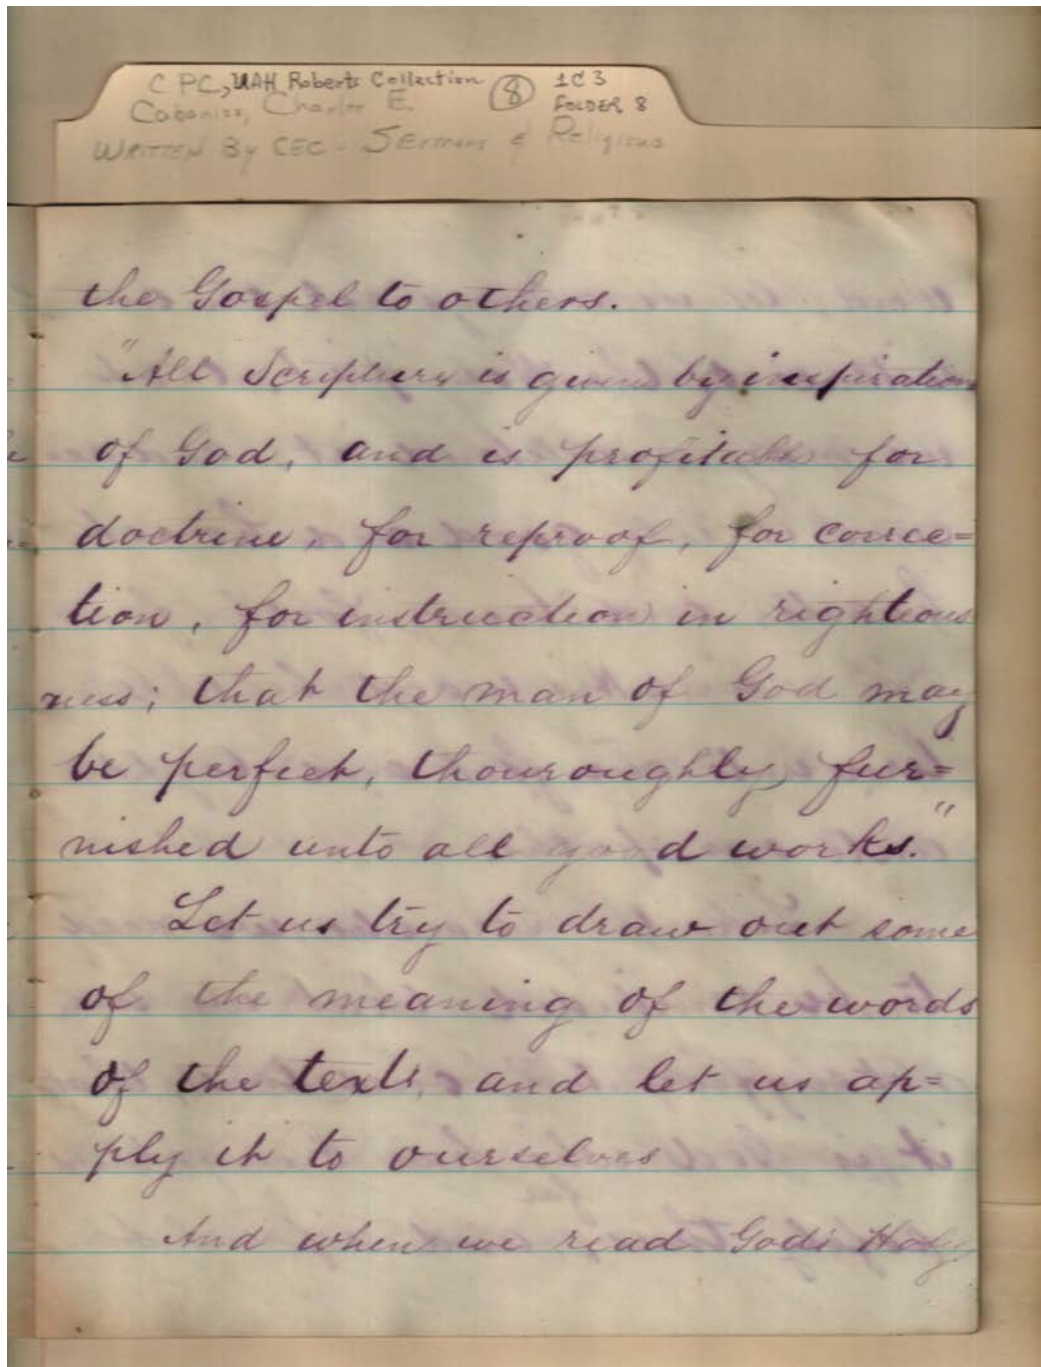 CPC, UAH Roberts Collection ⑧ 1C3
Cabaniss, Charles E. FOLDER 8
WRITTEN By CEC - SERMONS & Religious
the Gospel to others.
"All Scripture is given by inspiration
of God, and is profitable for
doctrine, for reproof, for correc=
tion, for instruction in righteous
ness; that the man of God may
be perfect, thouroughly fur=
nished unto all good works."
Let us try to draw out some
of the meaning of the words
of the text, and let us ap=
ply it to ourselves
And when we read God's Holy